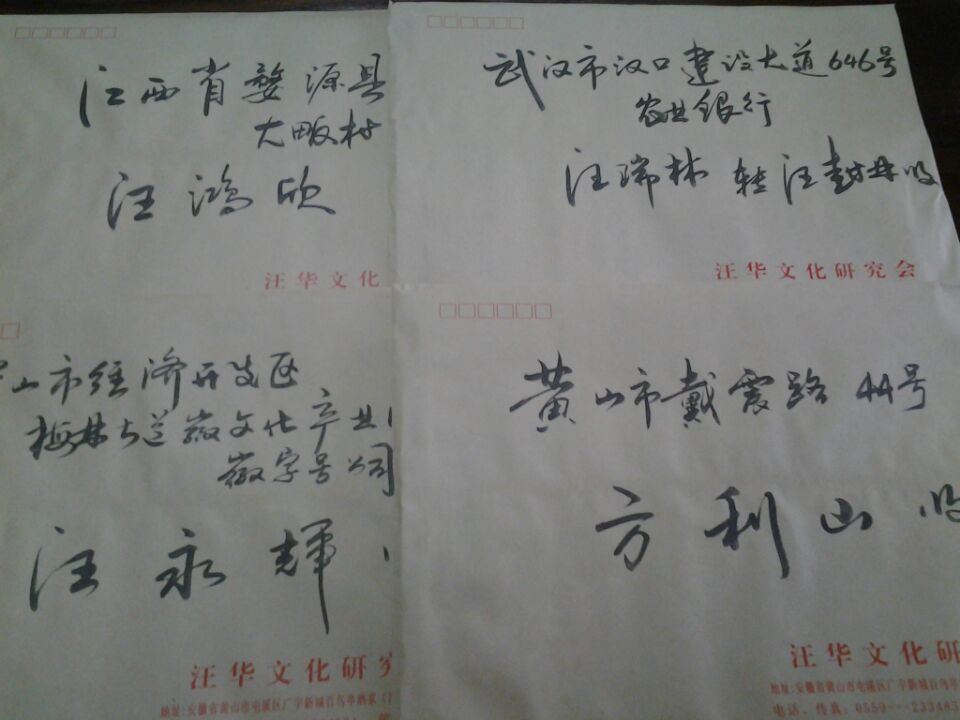 江西省婺源县
大畈村
汪鸿欣
汪华文化
武汉市汉口建设大道646号
农业银行
汪瑞林 转 汪 收
汪华文化研究会
山市经济开发区
梅林大道徽文化产业
徽字号公司
汪永辉
汪华文化研究
地址:安徽省黄山市屯溪区广宇新城百鸟亭酒家
黄山市戴震路44号
方利山 收
汪华文化研
地址:安徽省黄山市屯溪区广宇新城百鸟亭
电话、传真:0559---233483